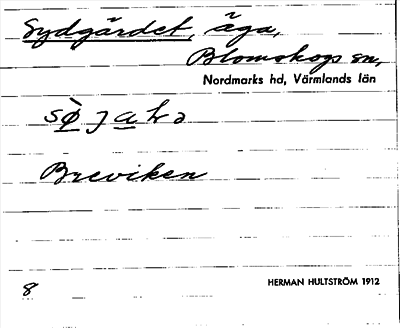 Sydgärdet, äga,
Blomskogs sn,
Nordmarks hd, Värmlands län
Breviken
8
HERMAN HULTSTRÖM 1912